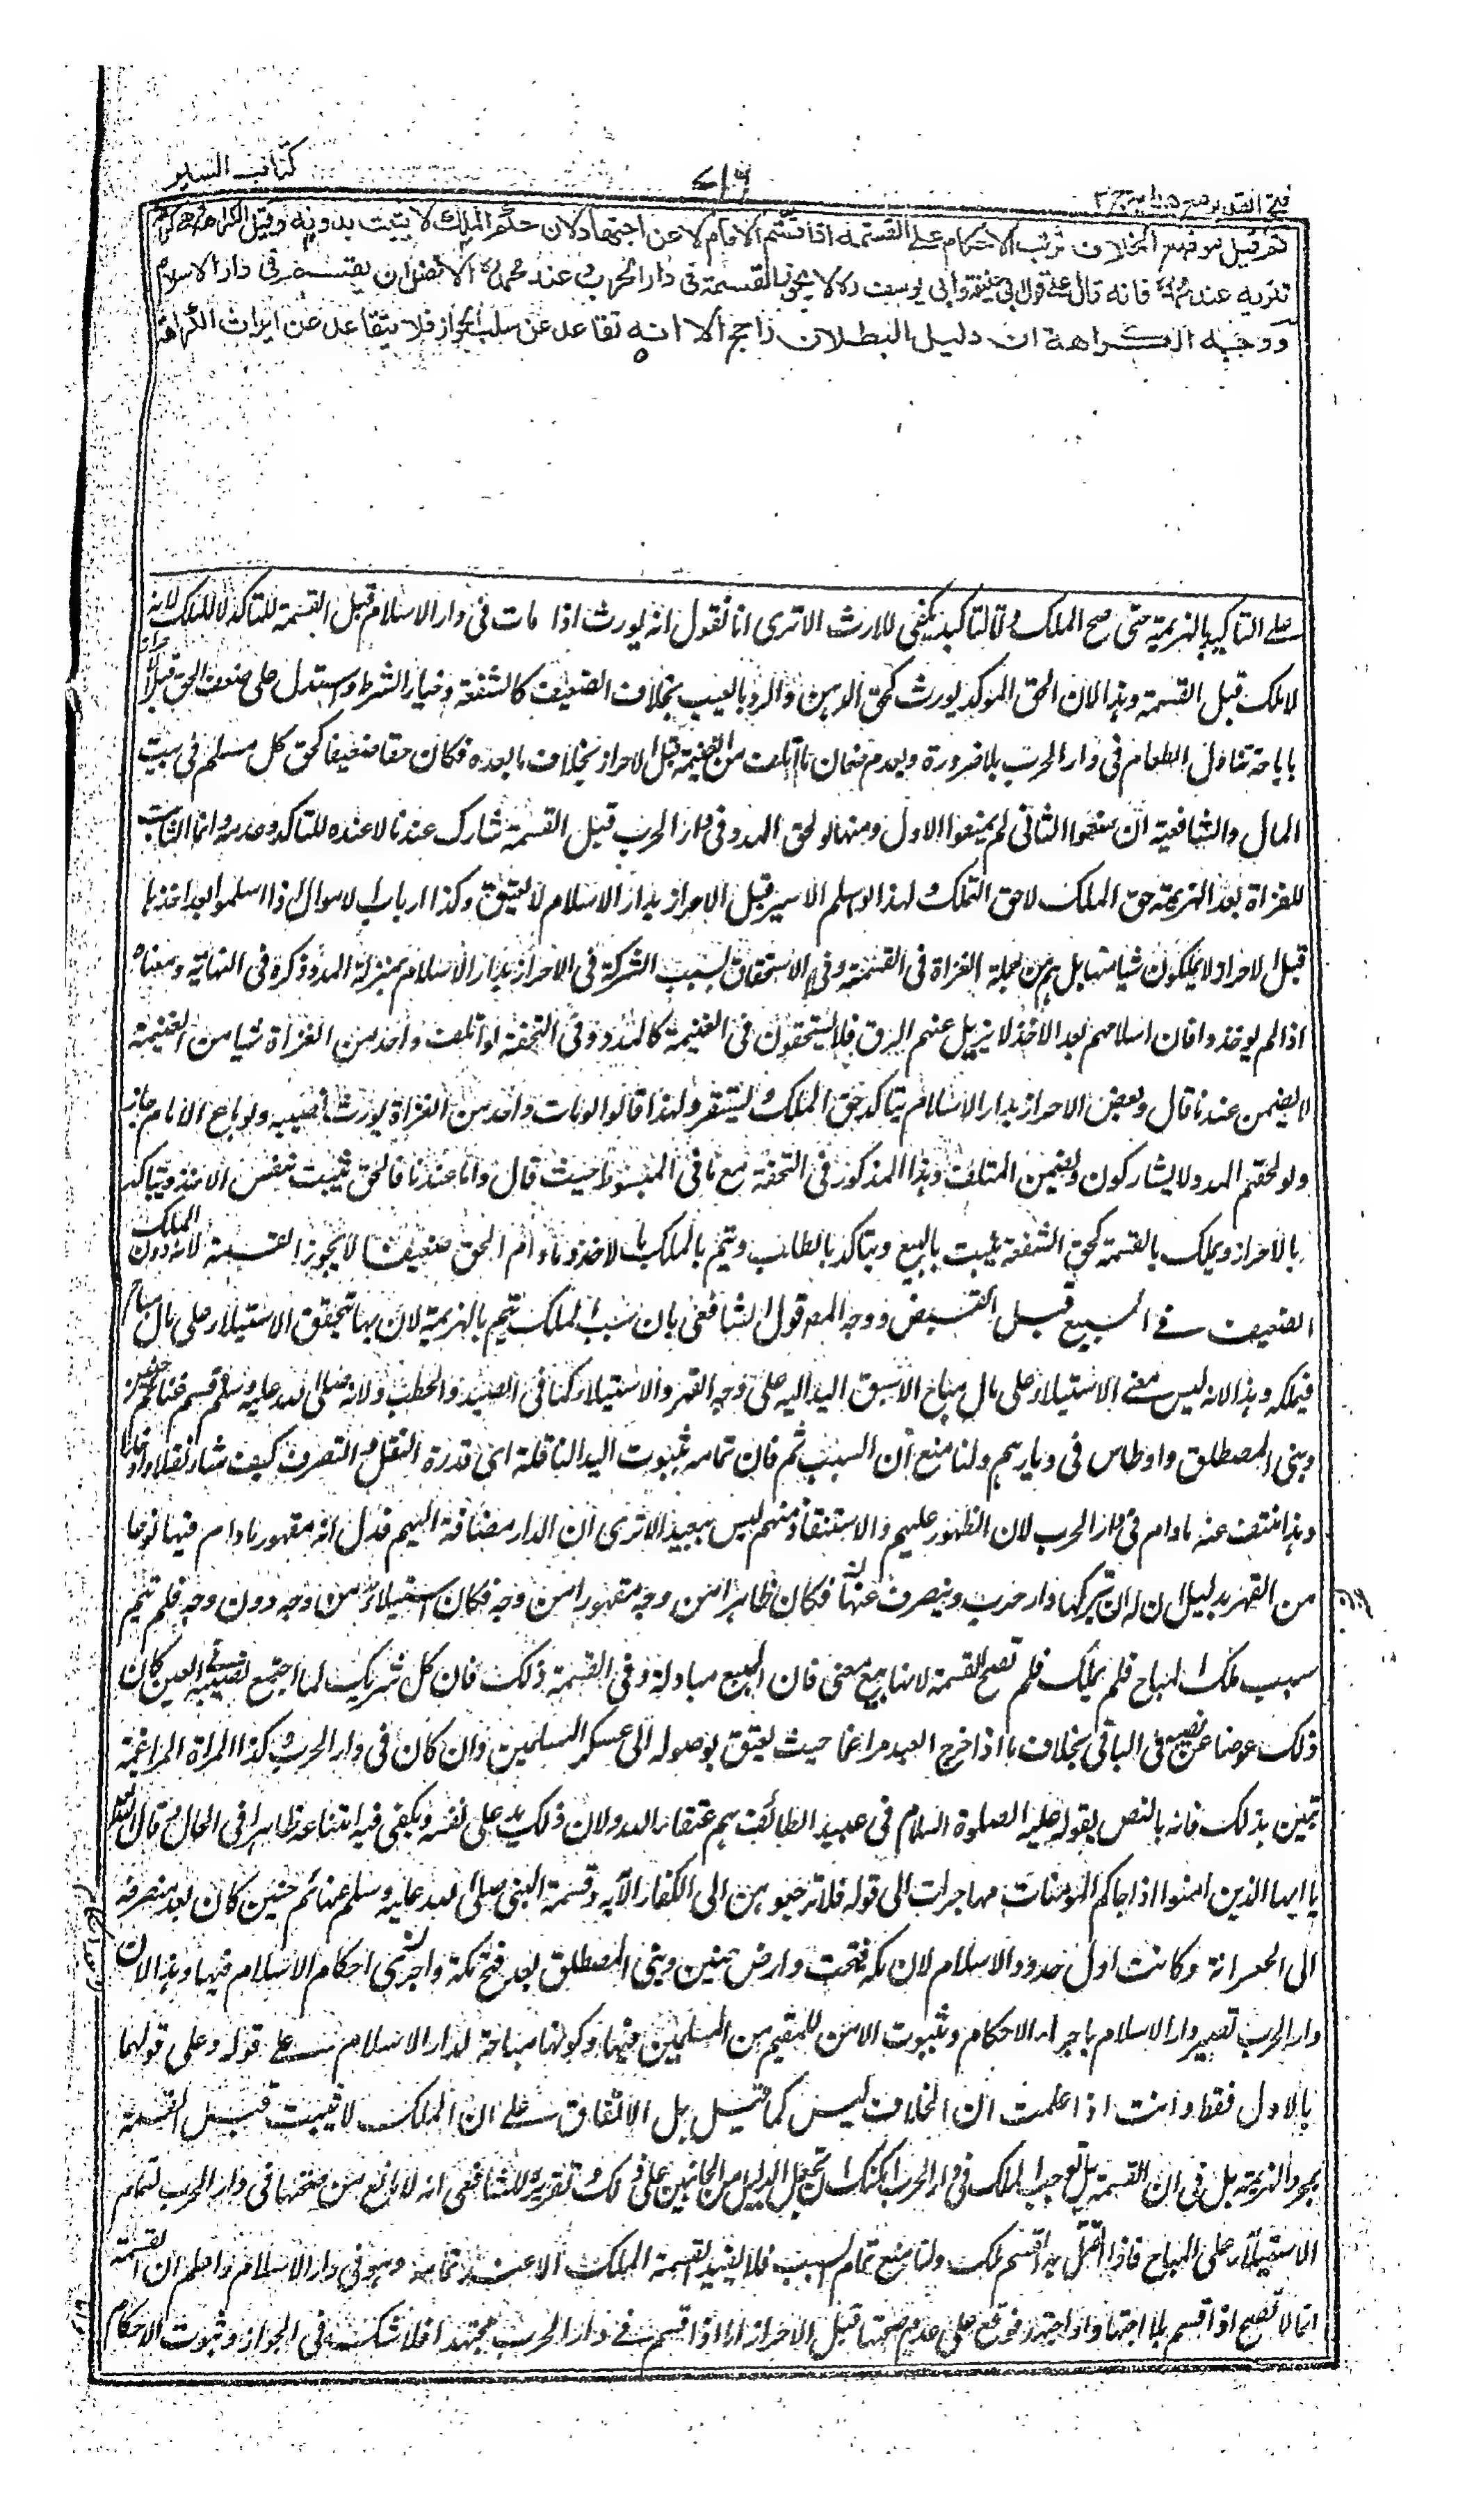 فتح القدير مع هدايہ ج ٢
٧١٦
كتاب السير
ثم قيل موضع الخلاف ترتب الاحكام على القسمة اذا قسم الامام لا عن اجتهاد لان حكم الملك لا يثبت بدونه وقيل الكراهة هى كراهة
تنزيه عند محمد فانه قال على قول ابى حنيفة وابى يوسف لا يجوز القسمة فى دار الحرب وعند محمد الافضل ان يقسم فى دار الاسلام
ووجه الكراهة ان دليل البطلان راجح الا انه تقاعد عن سلب الجواز فلا يتقاعد عن ايراث الكراهة
على التاكيد بالهزيمة حتى صح الملك قالتاكيد يكفى للارث الا ترى انا نقول انه يورث اذا مات فى دار الاسلام قبل القسمة للتاكد لا للملك لانه
لا ملك قبل القسمة وهذا لان الحق الموكد يورث كحق الرهن والرد بالعيب بخلاف الضعيف كالشفعة وخيار الشرط واستدل على ضعف الحق قبل الاحراز
باباحة تناول الطعام فى دار الحرب بلا ضرورة وبعدم ضمان ما اتلف من الغنيمة قبل الاحراز بخلاف ما بعده فكان حقا ضعيفا كحق كل مسلم فى بيت
المال والشافعية ان منعوا الثانى لم يمنعوا الاول ومنها لو لحق المدد فى دار الحرب قبل القسمة شارك عندنا لا عنده للتاكد وعدمه وانما الثابت
للغزاة بعد الهزيمة حق الملك لا حق التملك ولهذا لو اسلم الاسير قبل الاحراز بدار الاسلام لا يعتق وكذا ارباب الاموال اذا اسلموا بعد اخذها
قبل الاحراز لا يملكون شيا منها بل هم من جملة الغزاة فى القسمة وفى الاستحقاق لسبب الشركة فى الاحراز بدار الاسلام بمنزلة المدد ذكره فى النهاية ومعناه
اذا لم يوخذوا فان اسلامهم بعد الاخذ لا يزيل عنهم الرق فلا يستحقون فى الغنيمة كالمدد وفى التحفة لو اتلف واحد من الغزاة شيا من الغنيمة
لا يضمن عندنا قال وبعض الاحراز بدار الاسلام يتاكد حق الملك ويستقر ولهذا قالوا لو مات واحد من الغزاة يورث نصيبه ولو باع الامام جاز
ولو لحقهم المدد لا يشاركون ويضمن المتلف وهذا المذكور فى التحفة مع ما فى المبسوط حيث قال واما عندنا فالحق يثبت بنفس الاخذ ويتاكد
بالاحراز ويملك بالقسمة كحق الشفعة يثبت بالبيع ويتاكد بالطلب ويتم بالملك بالاخذ وما دام الحق ضعيفا لا يجوز القسمة لانه دون الملك
الضعيف فى المبيع قبل القبض ووجه المص قول الشافعى بان سبب الملك يتم بالهزيمة لان بها يتحقق الاستيلاء على مال مباح
فيملكه وهذا لانه ليس معنى الاستيلاء على مال مباح الا سبق اليد اليه على وجه القهر والاستيلاء كما فى الصيد والحطب ولانه صلى الله عليه وسلم قسم غنائم حنين
وبنى المصطلق واوطاس فى ديارهم ولنا منع ان السبب ثم فان تمامه بثبوت اليد الناقلة اى قدرة النقل والتصرف كيف شاء نقلا وادخارا
وهذا منتف عنه ما دام فى دار الحرب لان الظهور عليهم والاستنقاذ منهم ليس ببعيد الا ترى ان الدار مضافة اليهم فدل انه مقهور ما دام فيها نوعا
من القهر بدليل ان له ان يتركها دار حرب وينصرف عنها فكان ظاهرا من وجه مقهورا من وجه فكان استيلاء من وجه دون وجه فلم يتم
سبب ملك المباح فلم يملك فلم تصح القسمة لانها بيع معنى فان البيع مبادلة وفى القسمة ذلك فان كل شريك لما اجتمع نصيبه فى العين كان
ذلك عوضا عن نصيبه فى الباقى بخلاف ما اذا خرج العبد مراغما حيث يعتق بوصوله الى عسكر المسلمين وان كان فى دار الحرب وكذا المراة المراغمة
تبين بذلك فانه بالنص بقوله عليه الصلوة السلام فى عبيد الطائف هم عتقاء الله ولان ذلك يد على نفسه ويكفى فيه امتناعه ظاهرا فى الحال قال الله تعالى
يا ايها الذين امنوا اذا جاكم المومنات مهاجرات الى قوله فلا ترجعوهن الى الكفار الآية وقسمة النبى صلى الله عليه وسلم غنائم حنين كان بعد منصرفه
الى الجعرانة وكانت اول حدود الاسلام لان مكة فتحت وارض حنين وبنى المصطلق بعد فتح مكة واجرى احكام الاسلام فيها وهذا لان
دار الحرب تصير دار الاسلام باجراء الاحكام وبثبوت الامن للمقيم من المسلمين فيها وكونها متاخمة لدار الاسلام على قوله وعلى قولهما
بالاول فقط وانت اذا علمت ان الخلاف ليس كما قيل بل الاتفاق على ان الملك لا يثبت قبل القسمة
بمجرد الهزيمة بل فى ان القسمة هل توجب الملك فى دار الحرب امكنك ان تجعل الدليل من الجانبين على ذلك وتقريره للشافعى انه لا مانع من صحتها فى دار الحرب لتمام
الاستيلاء على المباح فاذا اتصل به القسم ملك ولنا منع تمام السبب فلا تفيد القسمة الملك الا عند تمامه وهو فى دار الاسلام واعلم ان القسمة
انما لا تصح اذا قسم بلا اجتهاد او اجتهد فوقع على عدم صحتها قبل الاحراز اما اذا قسم فى دار الحرب مجتهدا فلا شك فى الجواز وثبوت الاحكام